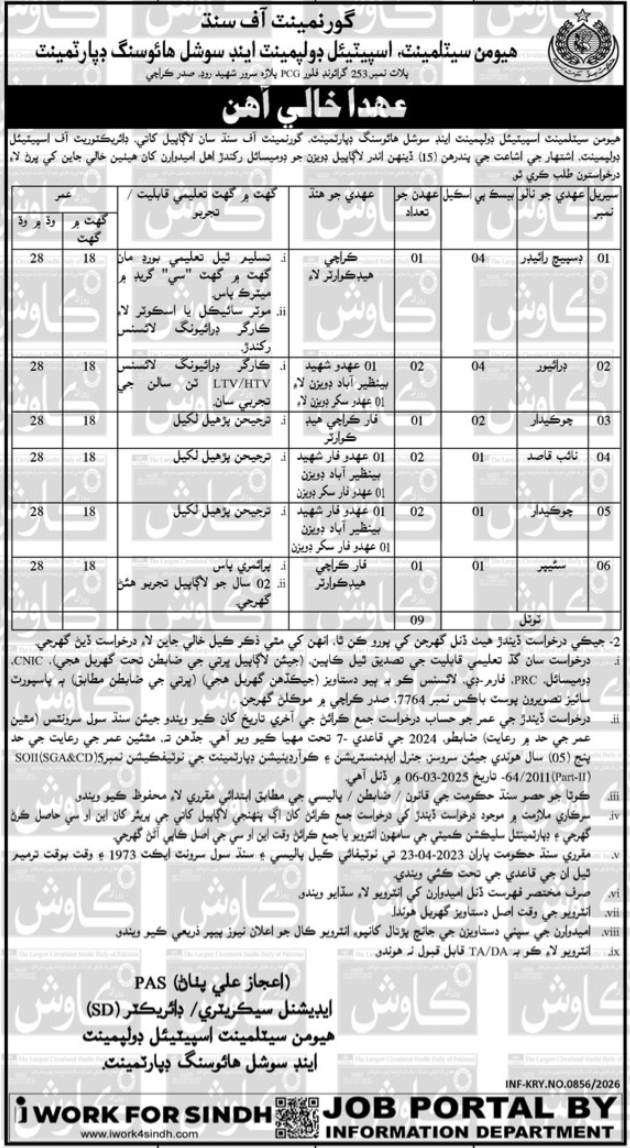 گورنمينٽ آف سنڌ
هيومن سيٽلمينٽ، اسپيٽيئل ڊولپمينٽ اينڊ سوشل هائوسنگ ڊپارٽمينٽ
پلاٽ نمبر 253 گرائونڊ فلور PCG پلازه سرور شهيد روڊ، صدر ڪراچي
عهدا خالي آهن
هيومن سيٽلمينٽ اسپيٽيئل ڊولپمينٽ اينڊ سوشل هائوسنگ ڊپارٽمينٽ، گورنمينٽ آف سنڌ سان لاڳاپيل کاتي، ڊائريڪٽوريٽ آف اسپيٽيئل
ڊولپمينٽ، اشتهار جي اشاعت جي پندرهن (15) ڏينهن اندر لاڳاپيل ڊويزن جو ڊوميسائل رکندڙ اهل اميدوارن کان هيٺين خالي جاين کي ڀرڻ لاءِ
درخواستون طلب ڪري ٿو.
سيريل نمبر | عهدي جو نالو | بيسڪ پي اسڪيل | عهدن جو تعداد | عهدي جو هنڌ | گهٽ ۾ گهٽ تعليمي قابليت / تجربو | عمر
گهٽ ۾ گهٽ | وڌ ۾ وڌ
01 | ڊسپيچ رائيڊر | 04 | 01 | ڪراچي هيڊڪوارٽر لاءِ | i. تسليم ٿيل تعليمي بورڊ مان گهٽ ۾ گهٽ "سي" گريڊ ۾ ميٽرڪ پاس. | 18 | 28
ii. موٽر سائيڪل يا اسڪوٽر لاءِ ڪارگر ڊرائيونگ لائسنس رکندڙ.
02 | ڊرائيور | 04 | 02 | 01 عهدو شهيد بينظير آباد ڊويزن لاءِ 01 عهدو سکر ڊويزن لاءِ | i. ڪارگر ڊرائيونگ لائسنس LTV/HTV ٽن سالن جي تجربي سان. | 18 | 28
03 | چوڪيدار | 02 | 01 | فار ڪراچي هيڊ ڪوارٽر | i. ترجيحن پڙهيل لکيل | 18 | 28
04 | نائب قاصد | 01 | 02 | 01 عهدو فار شهيد بينظير آباد ڊويزن 01 عهدو فار سکر ڊويزن | i. ترجيحن پڙهيل لکيل | 18 | 28
05 | چوڪيدار | 01 | 02 | 01 عهدو فار شهيد بينظير آباد ڊويزن 01 عهدو فار سکر ڊويزن | i. ترجيحن پڙهيل لکيل | 18 | 28
06 | سئيپر | 01 | 01 | فار ڪراچي هيڊڪوارٽر | i. پرائمري پاس | 18 | 28
ii. 02 سال جو لاڳاپيل تجربو هئڻ گهرجي.
ٽوٽل | 09
2- جيڪي درخواست ڏيندڙ هيٺ ڏنل گهرجن کي پورو ڪن ٿا، انهن کي مٿي ذڪر ڪيل خالي جاين لاءِ درخواست ڏيڻ گهرجي.
i. درخواست سان گڏ تعليمي قابليت جي تصديق ٿيل ڪاپين، (جيئن لاڳاپيل ڀرتي جي ضابطن تحت گهربل هجي)، CNIC،
ڊوميسائل، PRC، فارم-ڊي، لائسنس ڪو به ٻيو دستاويز (جيڪڏهن گهربل هجي) (ڀرتي جي ضابطن مطابق) ۽ پاسپورٽ
سائيز تصويرون پوسٽ باڪس نمبر 7764، صدر ڪراچي ۾ موڪلڻ گهرجن.
ii. درخواست ڏيندڙ جي عمر جو حساب درخواست جمع ڪرائڻ جي آخري تاريخ کان ڪيو ويندو جيئن سنڌ سول سرونٽس (مٿين
عمر جي حد ۾ رعايت) ضابطو، 2024 جي قاعدي -7 تحت مهيا ڪيو ويو آهي. جڏهن ته مٿئين عمر جي رعايت جي حد
پنج (05) سال هوندي جيئن سروسز، جنرل ايڊمنسٽريشن ۽ ڪوآرڊينيشن ڊپارٽمينٽ جي نوٽيفڪيشن نمبر SOII(SGA&CD)5
-64/2011(Part-II) تاريخ 06-03-2025 ۾ ڏنل آهي.
iii. ڪوٽا جو حصو سنڌ حڪومت جي قانون / ضابطن / پاليسي جي مطابق ابتدائي مقرري لاءِ محفوظ ڪيو ويندو.
iv. سرڪاري ملازمت ۾ موجود درخواست ڏيندڙ کي درخواست جمع ڪرائڻ کان اڳ پنهنجي لاڳاپيل کاتي جي پريئر کان اين او سي حاصل ڪرڻ
گهرجي ۽ ڊپارٽمينٽل سليڪشن ڪميٽي جي سامهون انٽرويو يا جمع ڪرائڻ وقت اين او سي جي اصل ڪاپي آڻڻ گهرجي.
v. مقرري سنڌ حڪومت پاران 23-04-2023 تي نوٽيفائي ڪيل پاليسي ۽ سنڌ سول سرونٽ ايڪٽ 1973 ۽ وقت بوقت ترميم
ٿيل ان جي قاعدي جي تحت ڪئي ويندي.
vi. صرف مختصر فهرست ڏنل اميدوارن کي انٽرويو لاءِ سڏايو ويندو.
vii. انٽرويو جي وقت اصل دستاويز گهربل هوندا.
viii. اميدوارن جي سڀني دستاويزن جي جانچ پڙتال کانپوءِ انٽرويو ڪال جو اعلان نيوز پيپر ذريعي ڪيو ويندو.
ix. انٽرويو لاءِ ڪو به TA/DA قابل قبول نه هوندو.
(اعجاز علي پٺاڻ) PAS
ايڊيشنل سيڪريٽري/ ڊائريڪٽر (SD)
هيومن سيٽلمينٽ اسپيٽيئل ڊولپمينٽ
اينڊ سوشل هائوسنگ ڊپارٽمينٽ.
INF-KRY.NO.0856/2026
i WORK FOR SINDH
www.iwork4sindh.com
JOB PORTAL BY
INFORMATION DEPARTMENT